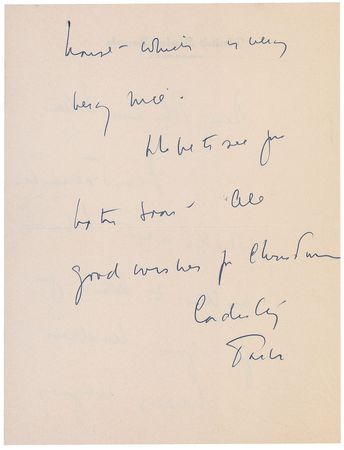 house – which is very
very nice.
Hope to see you
both soon – All
good wishes for Christmas
Cordially